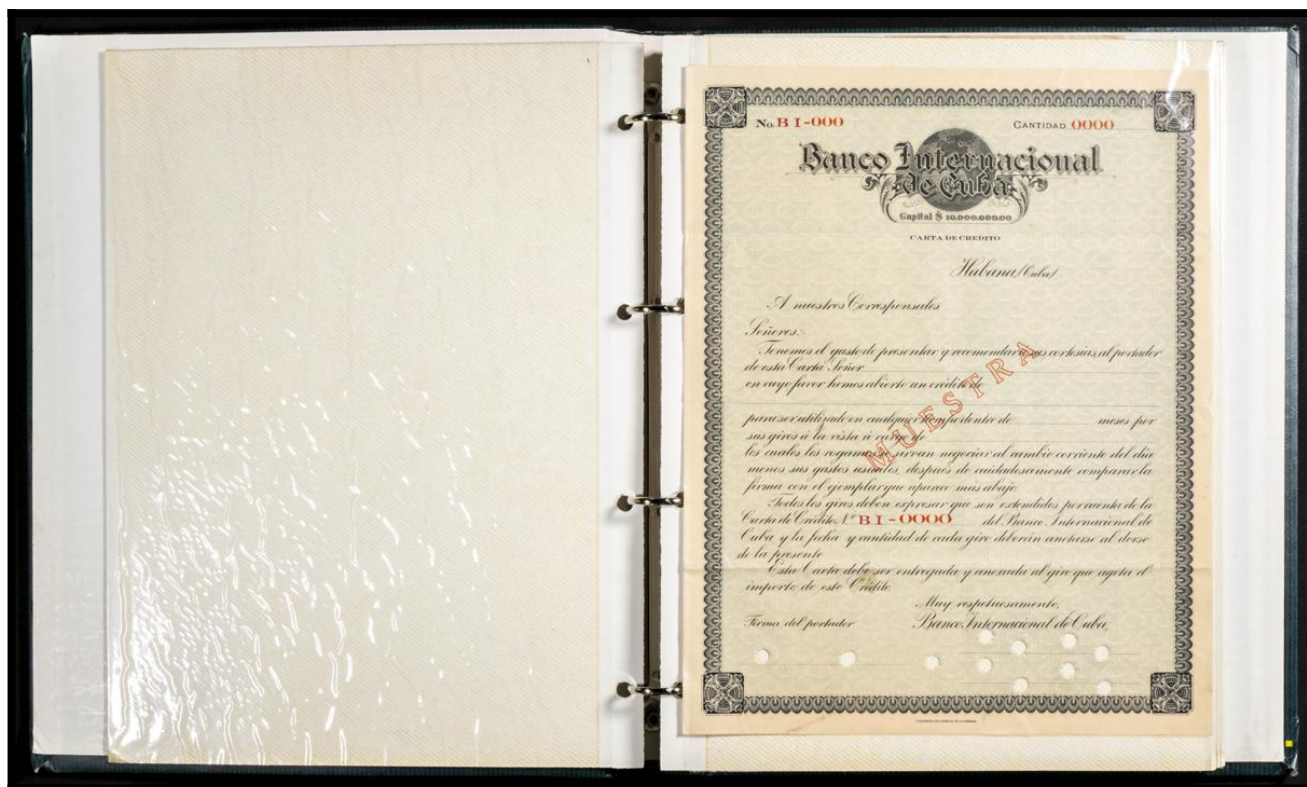 No. B I-000
CANTIDAD 0000
Banco Internacional
de Cuba
Capital $ 10.000.000.00
CARTA DE CREDITO
Habana (Cuba)
A nuestros Corresponsales
Señores:-
Tenemos el gusto de presentar y recomendar a sus cortesias, al portador
de esta Carta Señor
en cuyo favor hemos abierto un crédito de
para ser utilizado en cualquier tiempo dentro de meses por
sus giros à la vista à cargo de
los cuales les rogamos se sirvan negociar al cambio corriente del dia
menos sus gastos usuales, después de cuidadosamente comparar la
firma con el ejemplar que aparece más abajo.
Todos los giros deben expresar que son extendidos por cuenta de la
Carta de Crédito N.º B I-0000 del Banco Internacional de
Cuba y la fecha y cantidad de cada giro deberán anotarse al dorso
de la presente
Esta Carta debe ser entregada y anexada al giro que agota el
importe de este Crédito.
Muy respetuosamente,
Firma del portador
Banco Internacional de Cuba,
MUESTRA